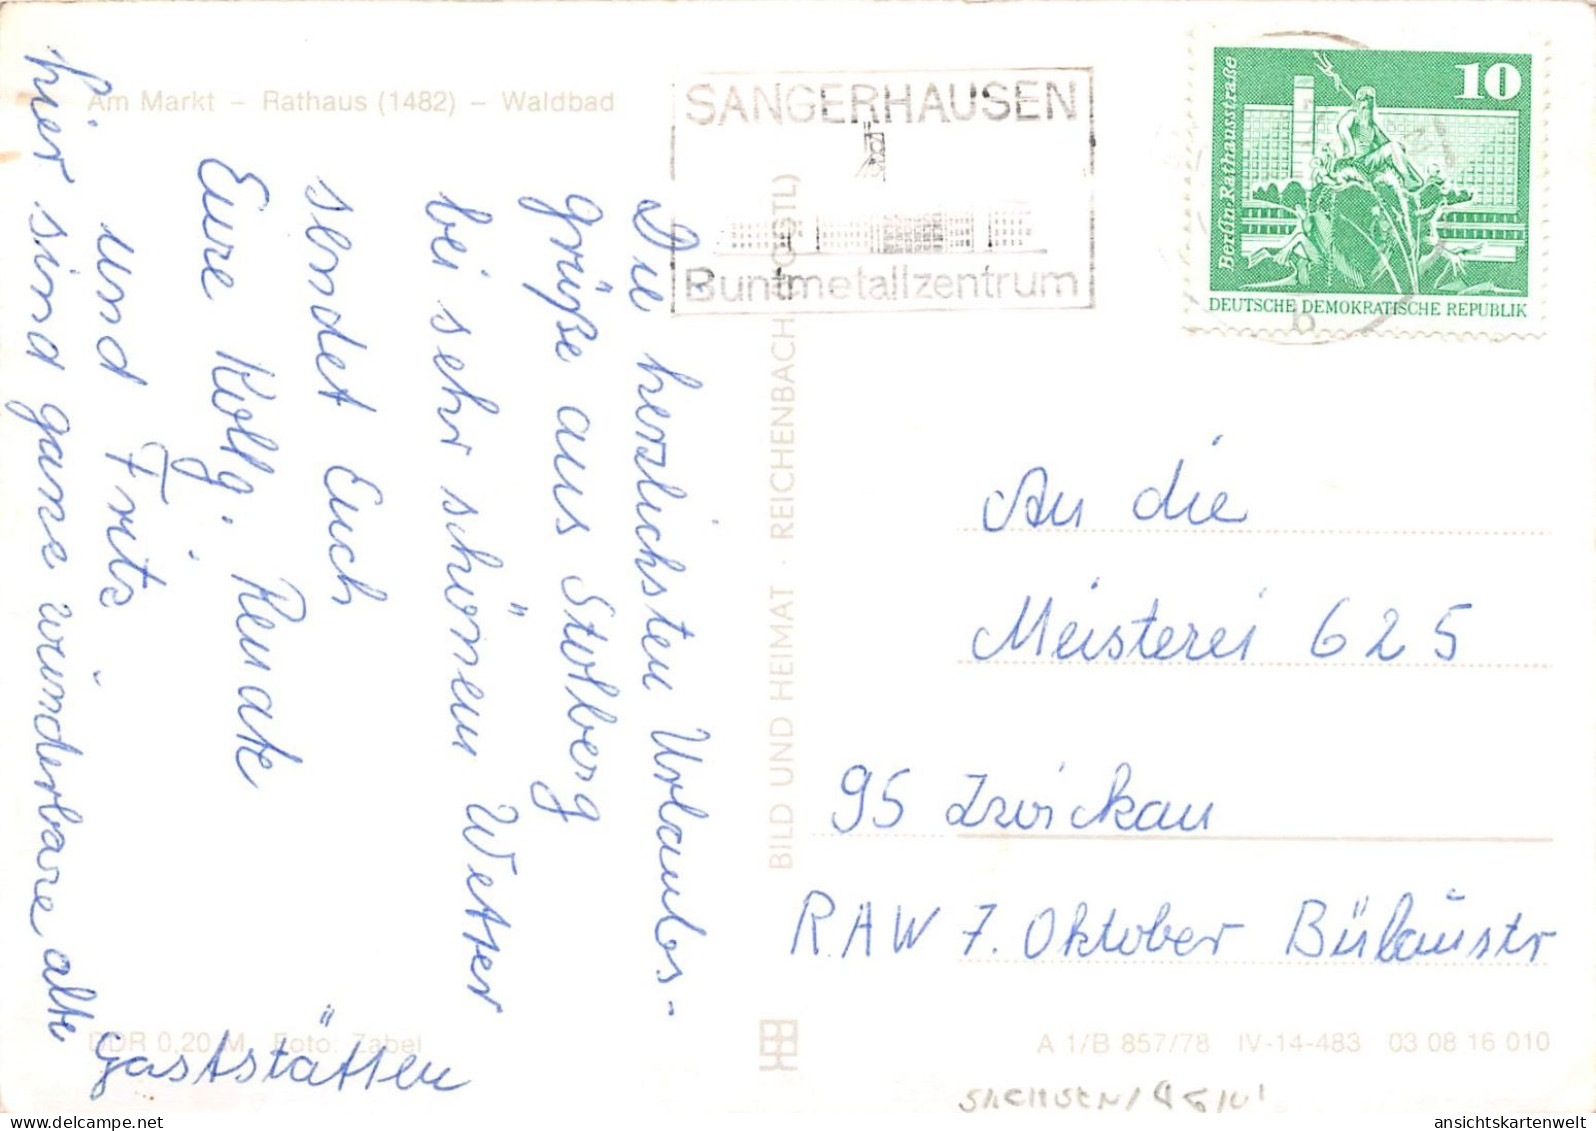 Am Markt – Rathaus (1482) – Waldbad
SANGERHAUSEN
Buntmetallzentrum
10
Berlin-Rathausstraße
DEUTSCHE DEMOKRATISCHE REPUBLIK
b
Die herzlichsten Urlaubs-
grüße aus Stolberg
bei sehr schönem Wetter
sendet Euch
Eure Kollg. Renate
und Fritz
hier sind ganz wunderbare alte
Gaststätten
BILD UND HEIMAT · REICHENBACH (VOGTL)
An die
Meisterei 625
95 Zwickau
RAW 7. Oktober
DDR 0,20 M Foto: Zabel
A 1/B 857/78 IV-14-483 03 08 16 010
SACHSEN/
ansichtskartenwelt.com